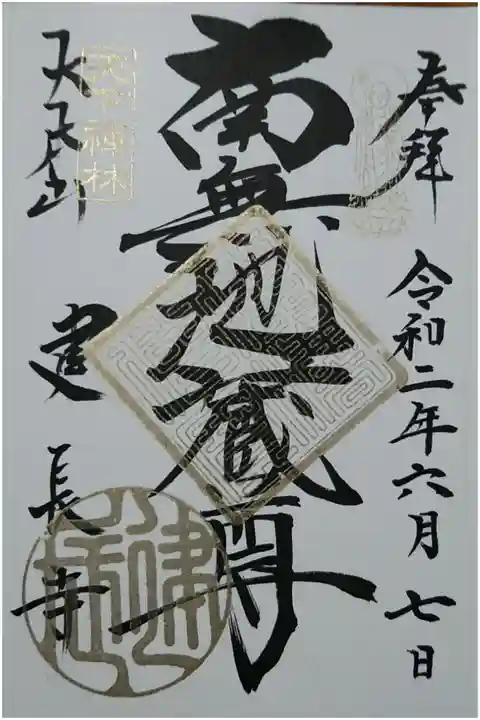 奉拝
令和二年六月七日
南無地蔵尊
天下禅林
建長寺
建長